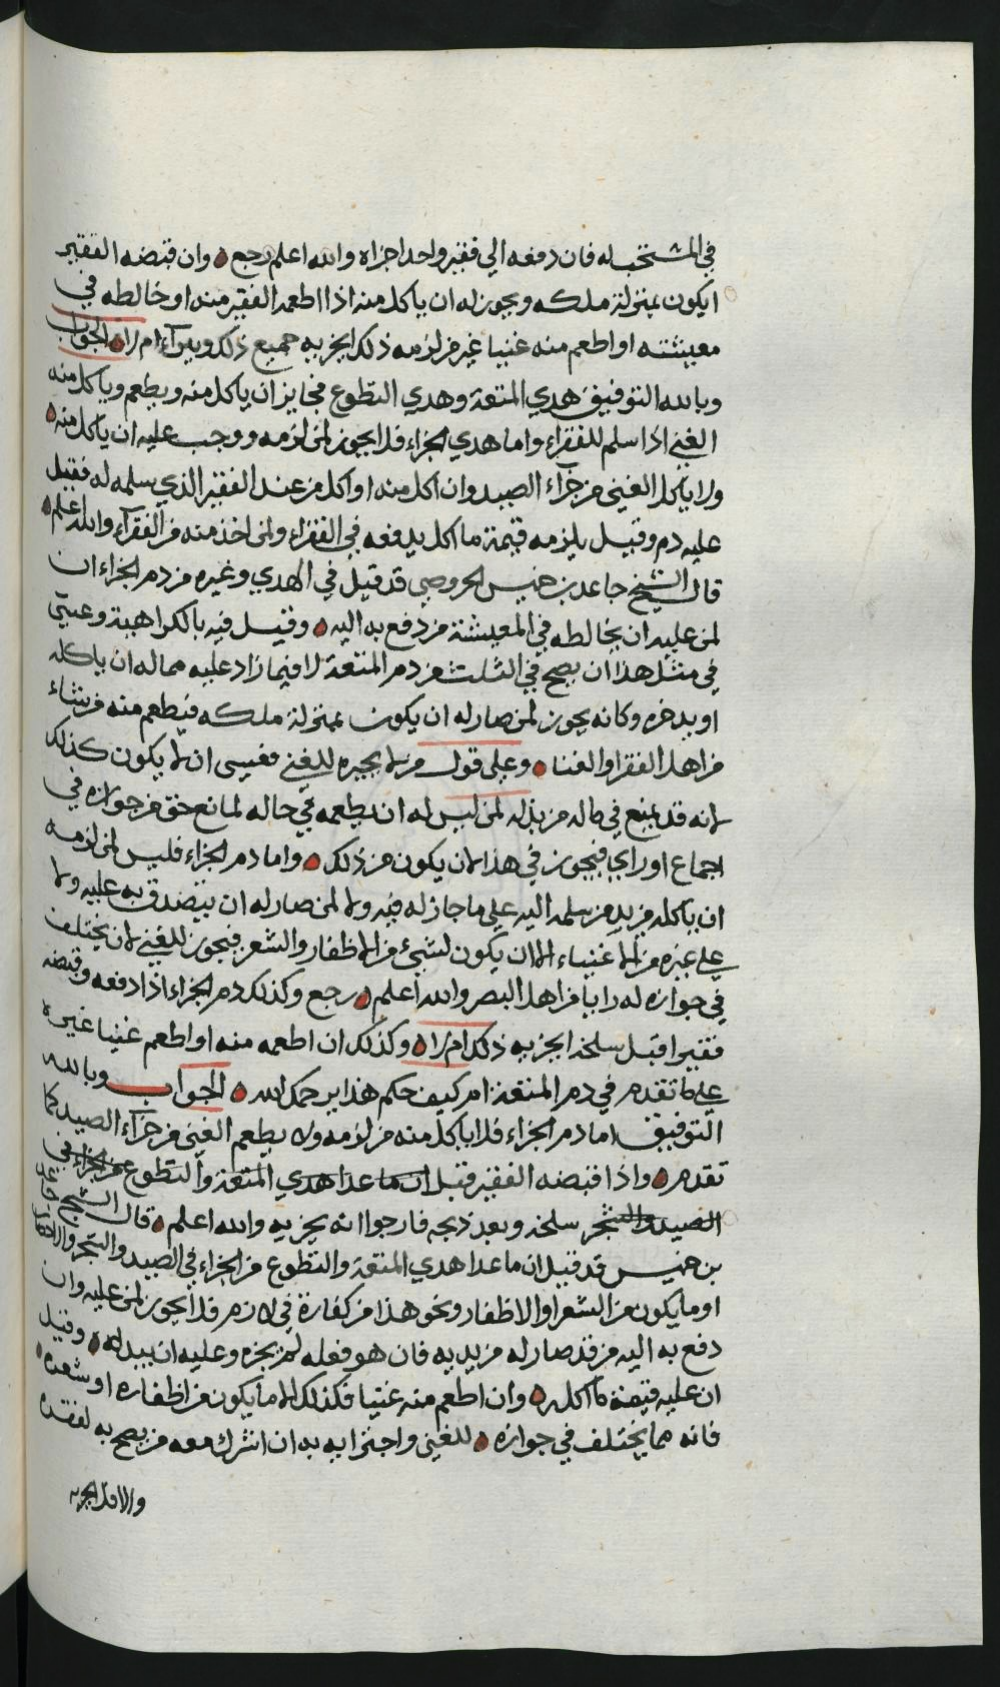 في المستحب له فان دفعه الي فقير واحد اجزاه والله اعلم رجع وان قبضه الفقير
ايكون بمنزلة ملكه ويجوز له ان ياكل منه اذا اطعمه الفقير منه او خالطه في
معيشته او اطعم منه غنيا غير من لزمه ذلك ايجزيه جميع ذلك ويبرآء ام لا الجواب
وبالله التوفيق هدي المتعة وهدي التطوع فجايز ان ياكل منه ويطعم وياكل منه
الغني اذا سلم للفقراء واما هدي الجزاء فلا يجوز لمن لزمه ووجب عليه ان ياكل منه
ولا ياكل الغني من جزآء الصيد وان اكل منه او اكل من عند الفقير الذي سلمه له فقيل
عليه دم وقيل يلزمه قيمة ما اكل يدفعه في الفقراء ولمن اخذ منه من الفقرآء والله اعلم
قال الشيخ جاعد بن خميس الخروصي قد قيل في الهدي وغيره من دم الجزاء ان
لمن عليه ان يخالطه في المعيشة من دفع به اليه وقيل فيه بالكراهية وعسى
في مثل هذا ان يصح في الثلث من دم المتعة لا فيما زاد عليه مما له ان ياكله
او يدخره وكانه يجوز لمن صار له ان يكون بمنزلة ملكه فيطعم منه من يشاء
من اهل الفقر او الغنا وعلى قول من لا يجيزه للغني فعسى ان لا يكون كذلك
لانه قد يمنع في ماله من بذله لمن ليس له ان يطعمه في حاله لمانع حق من جوازه في
اجماع او راي فيجوز في هذا لان يكون من ذلك واما دم الجزاء فليس لمن لزمه
ان ياكله من يد من سلمه اليه علي ما جاز له فيه ولا لمن صار له ان يتصدق به عليه ولا
علي غيره من الاغنياء الا ان يكون لشيء من الاظفار والشعر فيجوز للغني لان يختلف
في جوازه له رايا من اهل البصر والله اعلم رجع وكذلك دم الجزاء اذا دفعه وقبضه
فقيرا قبل سلخه ايجزيه ذلك ام لا وكذلك ان اطعمه منه او اطعم غنيا غيره
علي ما تقدم في دم المتعة ام كيف حكم هذا يرحمك الله الجواب وبالله
التوفيق اما دم الجزاء فلا ياكل منه من لزمه ولا يطعم الغني من جزآء الصيد كما
تقدم واذا قبضه الفقير قبل ان ما عدا هدي المتعة والتطوع من الجزاء في
الصيد والشجر سلخه وبعد ذبحه فارجوا انه يجزيه والله اعلم قال الشيخ جاعد
بن خميس قد قيل ان ما عدا هدي المتعة والتطوع من الجزاء في الصيد والشجر والاظفار
او ما يكون من الشعر او الاظفار ونحو هذا من كفارة في لازم فلا يجوز لمن عليه وان
دفع به اليه من قد صار له من يديه فان هو فعله لم يجزه وعليه ان يبدله وقيل
ان عليه قيمة ما اكله وان اطعم منه غنيا فكذلك الا ما يكون من اظفاره او شعره
فانه مما يختلف في جوازه للغني واجتزايه به ان اشرك معه من يصح به لفقره
والا فلا يجزيه